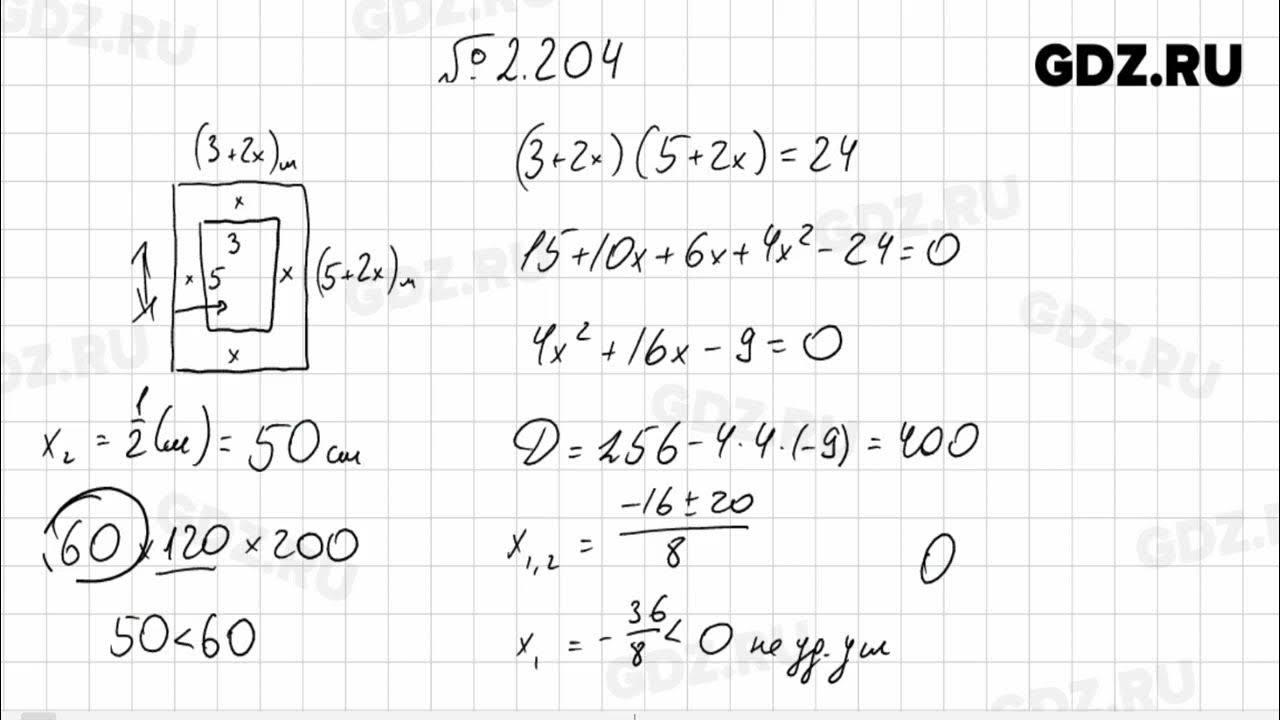 № 2.204
GDZ.RU
(3+2x) м
x
3
x 5 x (5+2x) м
x
x₂ = 1/2 (м) = 50 см
60 × 120 × 200
50 < 60
(3+2x)(5+2x) = 24
15+10x+6x+4x²-24=0
4x²+16x-9=0
D = 256-4·4·(-9) = 400
x₁,₂ = (-16 ± 20)/8
0
x₁ = -36/8 < 0 не уд. усл